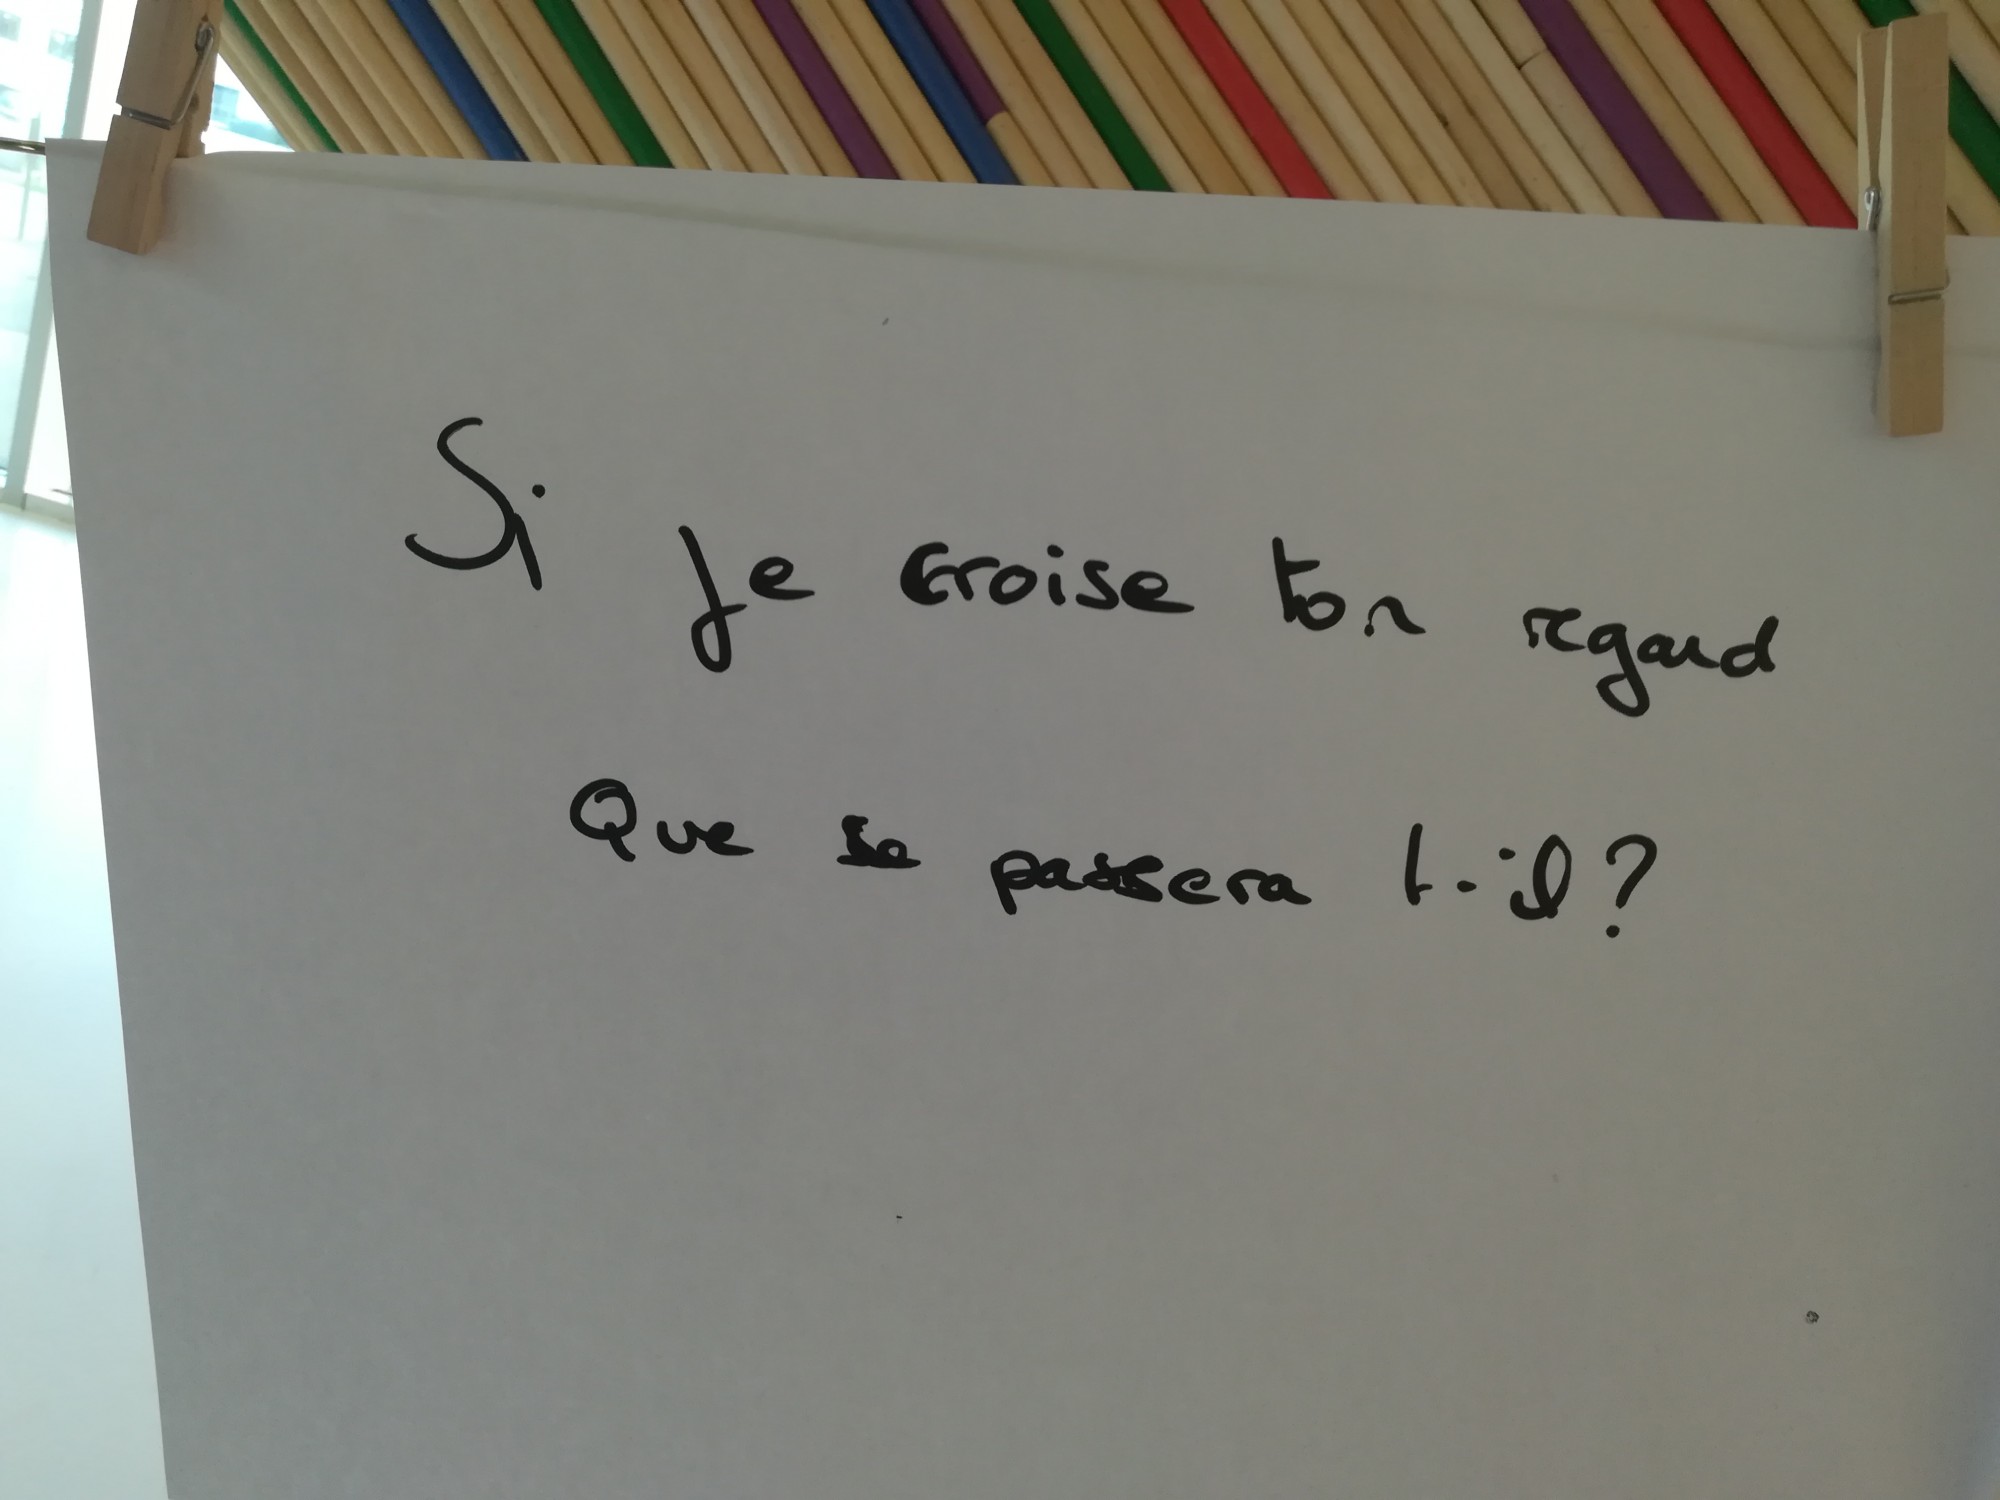 Si je croise ton regard
Que se passera t-il?